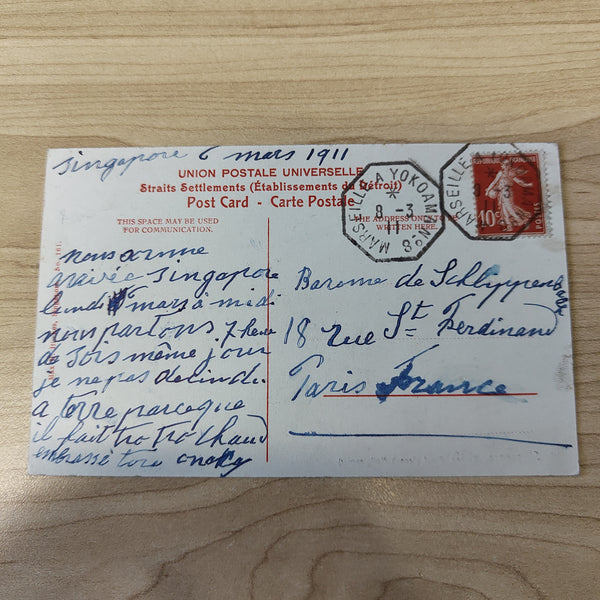 Singapore 6 mars 1911
UNION POSTALE UNIVERSELLE
Straits Settlements (Établissements du Détroit)
Post Card - Carte Postale
THIS SPACE MAY BE USED
FOR COMMUNICATION.
THE ADDRESS ONLY TO
WRITTEN HERE.
MARSEILLE A YOKOAMA N°8
8 - 3
11
MARSEILLE A
10c
POSTES
nous
arrivée Singapore
lundi mars à midi
nous partons 7 heure
de même jour
je ne pas
a terre parceque
il fait tro tro chaud
embrasse
Baronne de Schlippenbach
18 rue St Ferdinand
Paris France